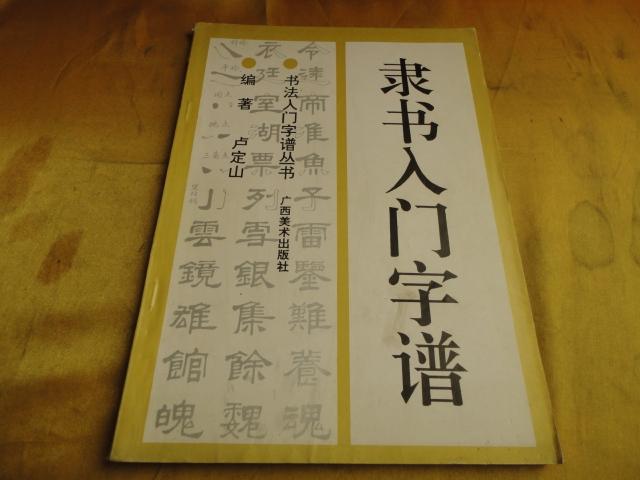 隶书入门字谱
书法入门字谱丛书
广西美术出版社
编著
卢定山
令衣
逑衽
帝室
淮湖
魚票
子列小
雷雪雲
鑒銀鏡
難集雄
養餘館
魂魏魄